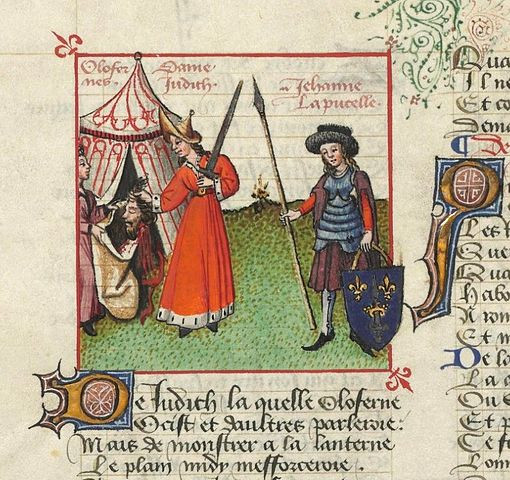 Olofer
nes.
Dame
Judith
Jehanne
La pucelle.
De Judith la quelle Oloferne
Ocist et daultres parleroie:
Mais de monstrer a la lanterne
Le plain midy mefforceroie.
Qua
Il ne
Et co
Que
Qua
Habo
Et m
De lo
Et p